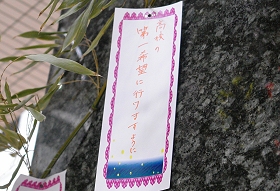 高校の
第一希望に行けますように